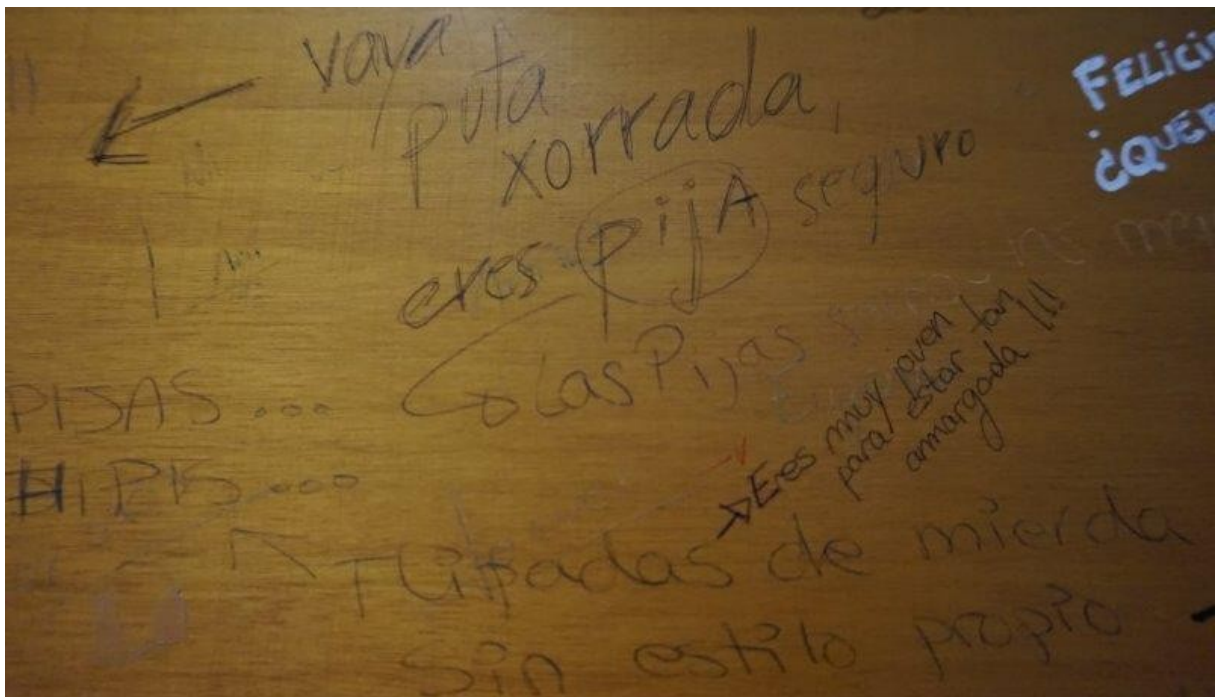 vaya
puta
xorrada,
eres pijA seguro
FELICI
¿QUE
Las Pijas
Eres muy joven
para estar tan
amargada !!!
PIJAS...
HiPIS...
FLipadas de mierda
sin estilo propio